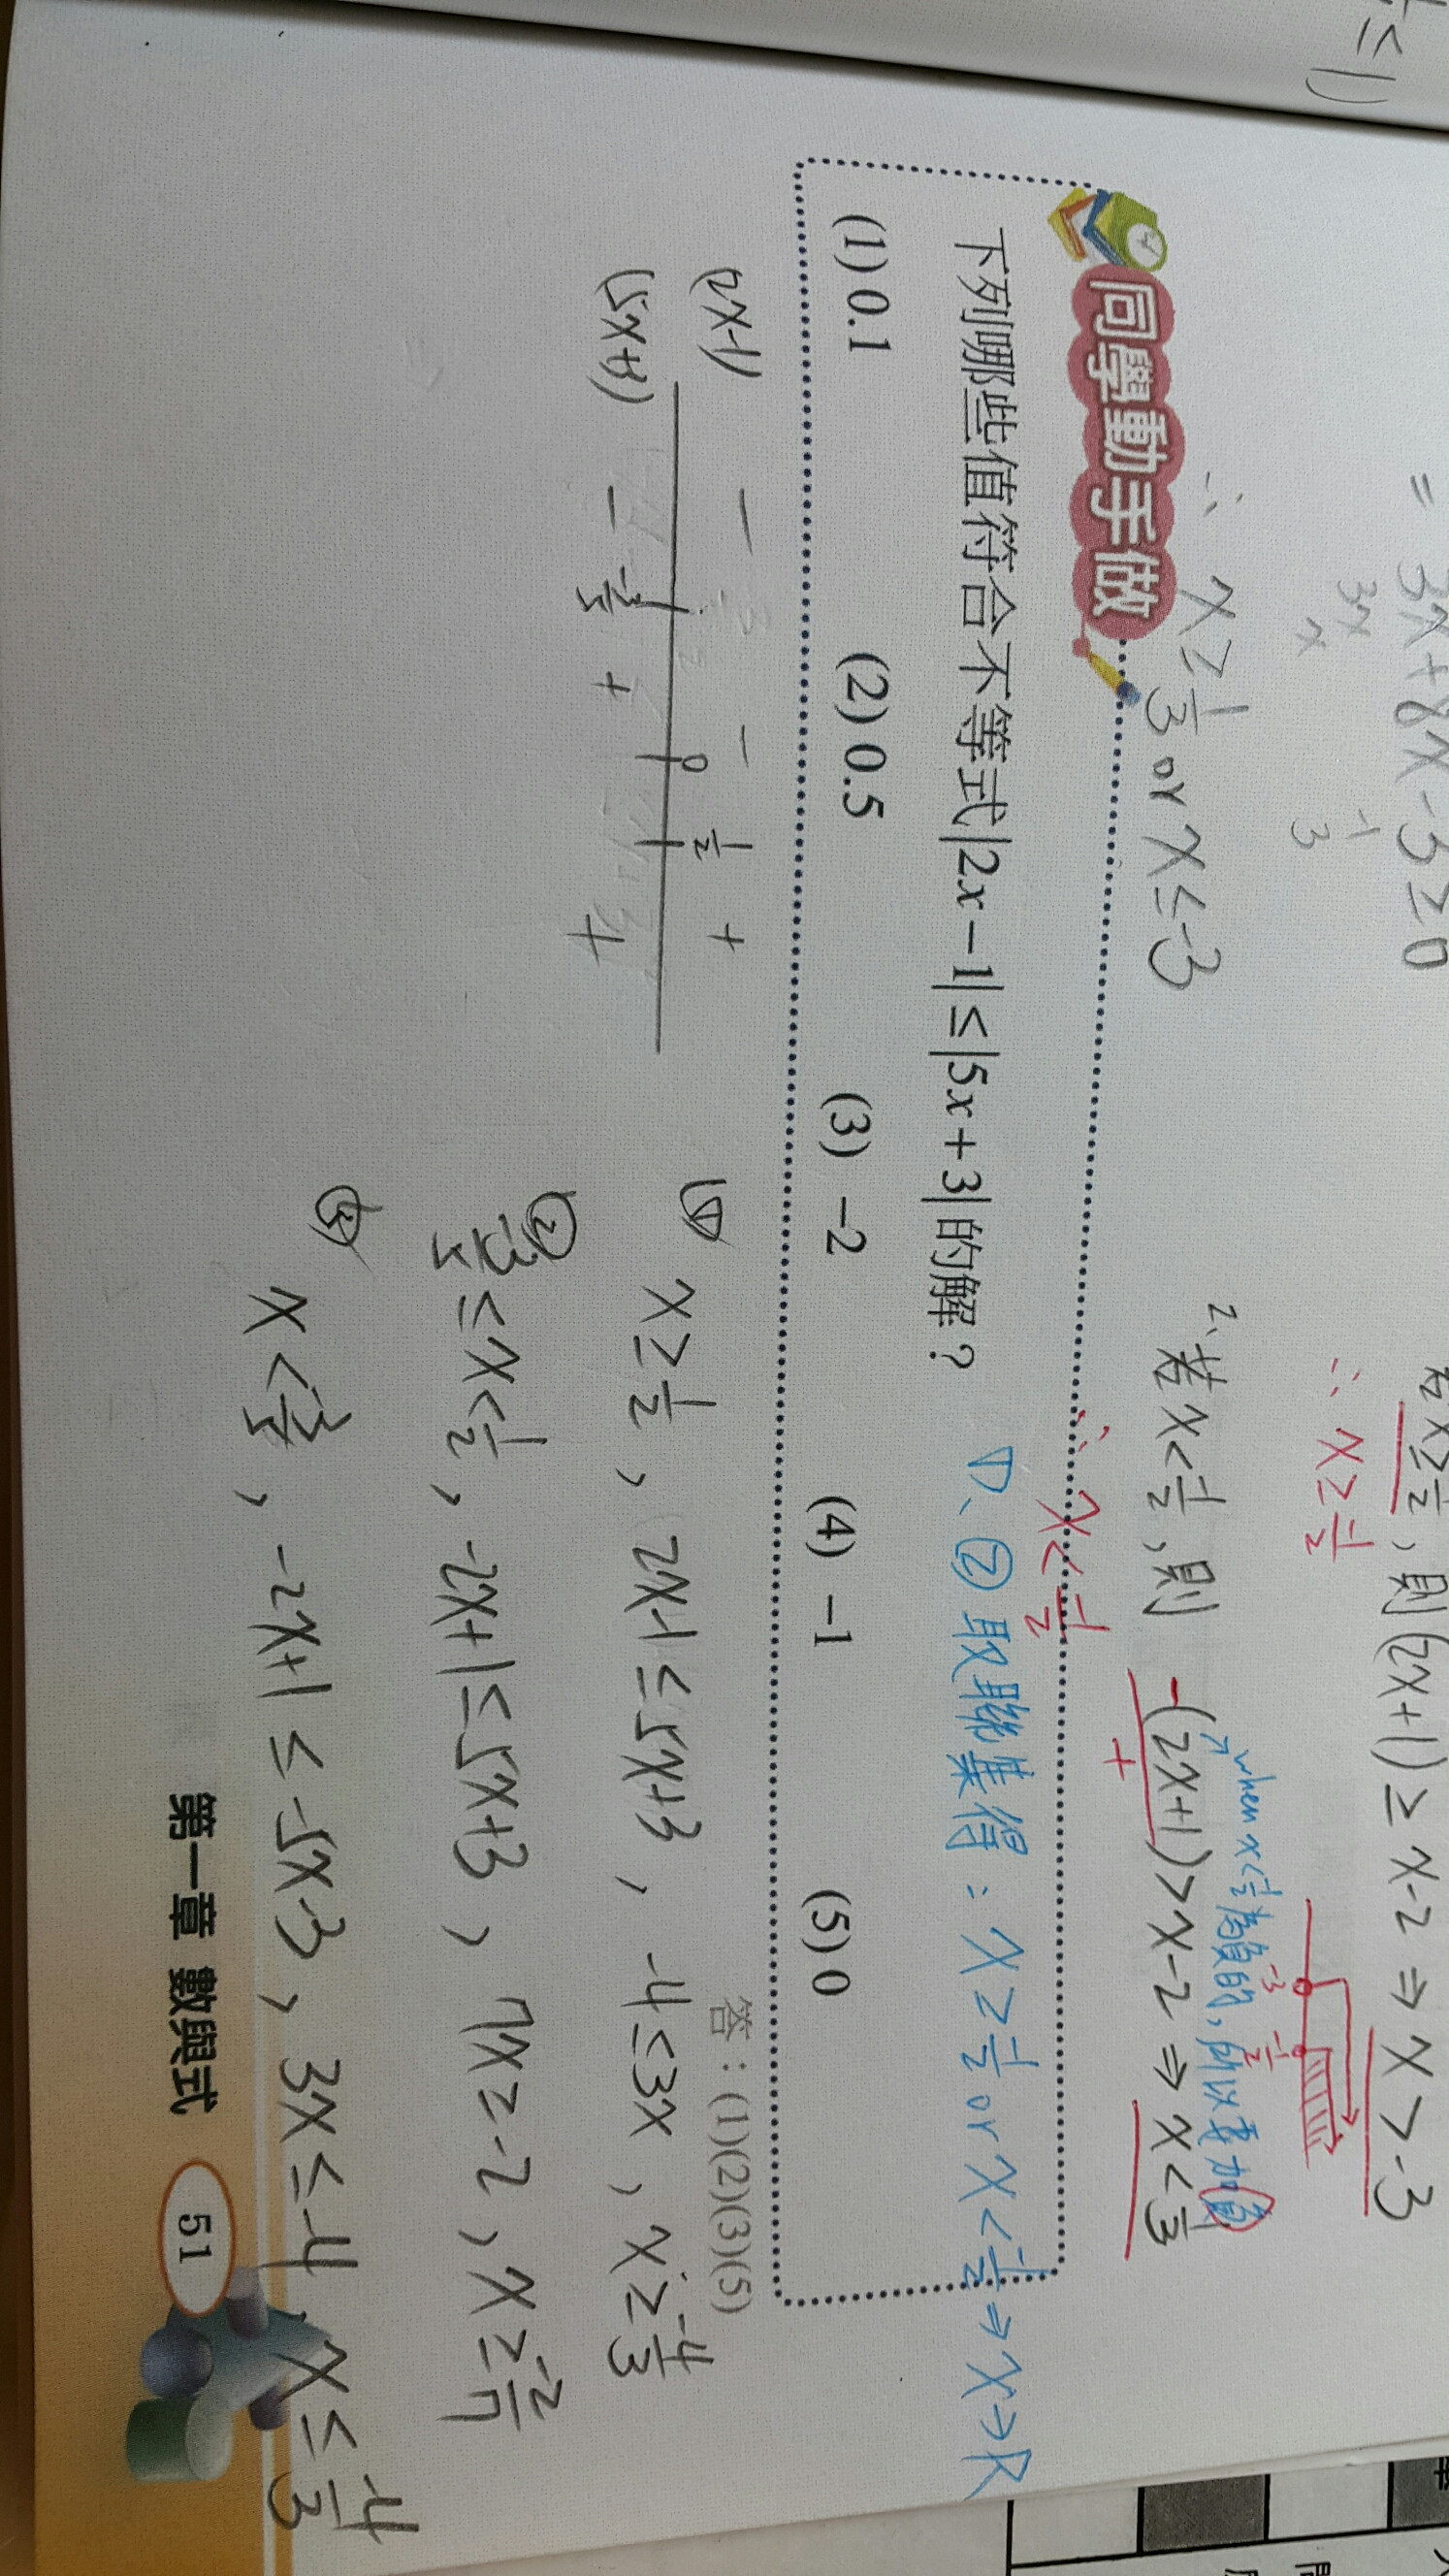 ≤1)
= 3x+8x-3≥0
3x -1
x 3
∴ x≥1/3 or x≤-3
若x≥1/2, 則(2x+1)≥x-2 ⇒ x>-3
∴ x≥1/2
-3 -1/2
when x<1/2為負的, 所以要加負
2、若x<1/2, 則 -(2x+1)>x-2 ⇒ x<1/3
+
∴ x<1/2
①、② 取聯集得: x≥1/2 or x<1/2 ⇒ x→R
同學動手做
下列哪些值符合不等式|2x-1|≤|5x+3|的解?
(1) 0.1 (2) 0.5 (3) -2 (4) -1 (5) 0
答:(1)(2)(3)(5)
(2x-1) - - +
-3/5 0 1/2
(5x+3) - + +
① x≥1/2, 2x-1≤5x+3, -4≤3x, x≥-4/3
② -3/5≤x<1/2, -2x+1≤5x+3, 7x≥-2, x≥-2/7
③ x<-3/5, -2x+1≤-5x-3, 3x≤-4, x≤-4/3
第一章 數與式 51